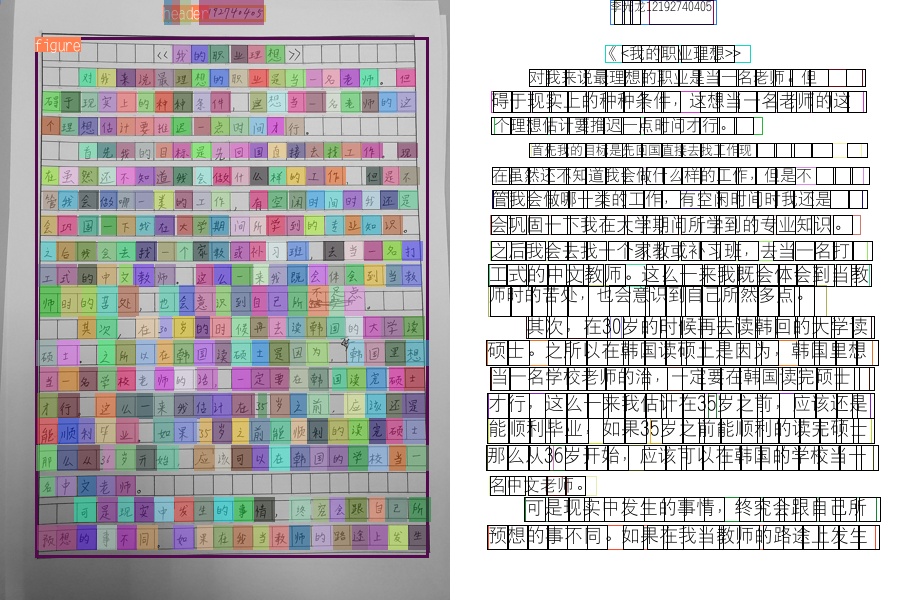 header 192740405
figure
《我的职业理想》
对我来说最理想的职业是当一名老师。但
碍于现实上的种种条件，这想当一名老师的这
个理想估计要推迟一点时间才行。
首先我的目标是先回国直接去找工作。现
在虽然还不知道我会做什么样的工作，但是不
管我会做哪一类的工作，有空闲时间时我还是
会巩固一下我在大学期间所学到的专业知识。
之后我会去找一个家教或补习班，去当一名打
工式的中文教师。这么一来我既会体会到当教
师时的苦处，也会意识到自己所
其次，在30岁的时候再去读韩国的大学读
硕士。之所以在韩国读硕士是因为，韩国里想
当一名学校老师的话，一定要在韩国读完硕士
才行。这么一来我估计在35岁之前，应该还是
能顺利毕业。如果35岁之前能顺利的读完硕士
那么从36岁开始，应该可以在韩国的学校当一
名中文老师。
可是现实中发生的事情，终究会跟自己所
预想的事不同。如果在我当教师的路途上发生
李光龙12192740405
《<我的职业理想>>
对我来说最理想的职业是当一名老师，但
碍于现实上的种种条件，这想当一名老师的这
个理想估计要推迟一点时间才行。
首先我的目标是先回国直接去找工作现
在虽然还不知道我会做什么样的工作，但是不
管我会做哪十类的工作，有空闲时间时我还是
会巩固一下我在大学期间所学到的专业知识。
之后我会去找一个家教或补习班，去当一名打
工式的中文教师。这么一来我既会体会到当教
师时的苦处，也会意识到自己所然多点。
其次，在30岁的时候再去读韩回的大学读
硕士。之所以在韩国读硕士是因为，韩国里想
当一名学校老师的治，一定要在韩国读完硕士
才行，这么一来我估计在35岁之前，应该还是
能顺利毕业，如果35岁之前能顺利的读完硕士
那么从36岁开始，应该可以在韩国的学校当十
名中文老师。
可是现实中发生的事情，终究会跟自己所
预想的事不同。如果在我当教师的路途上发生